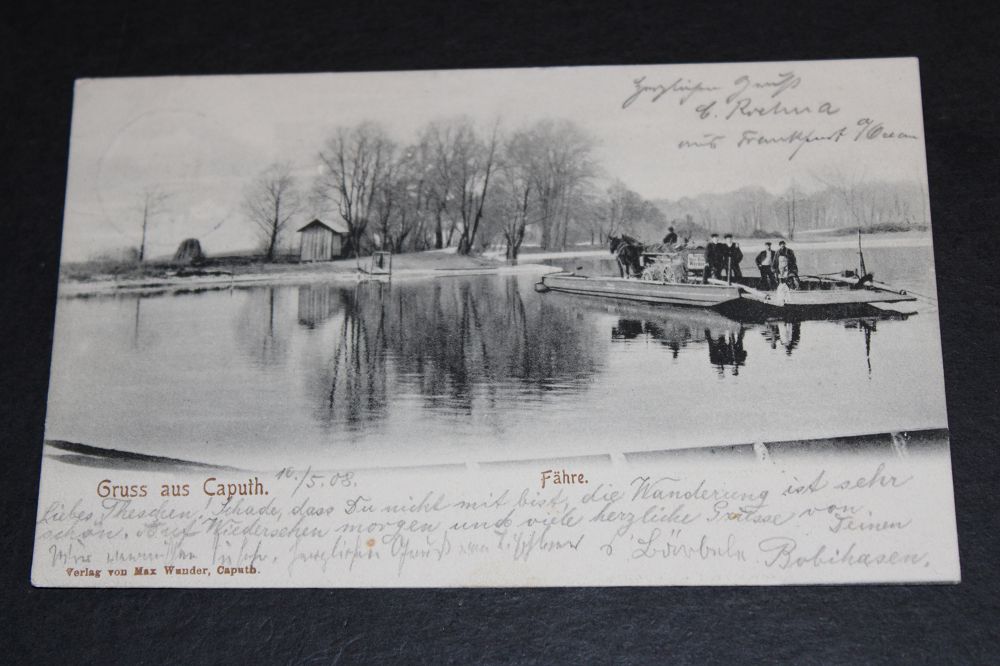 Herzlichen Gruß
E. Rothma
aus Frankfurt a/Oder
CAPUTH
Gruss aus Caputh.
10./5.08.
Fähre.
Liebes Theschen! Schade, dass Du nicht mit bist, die Wanderung ist sehr
schön. Auf Wiedersehen morgen und viele herzliche Grüsse von
Deinen
Wir herzlichen Gruß von
Bärbele
Bobihasen.
Verlag von Max Wander, Caputh.